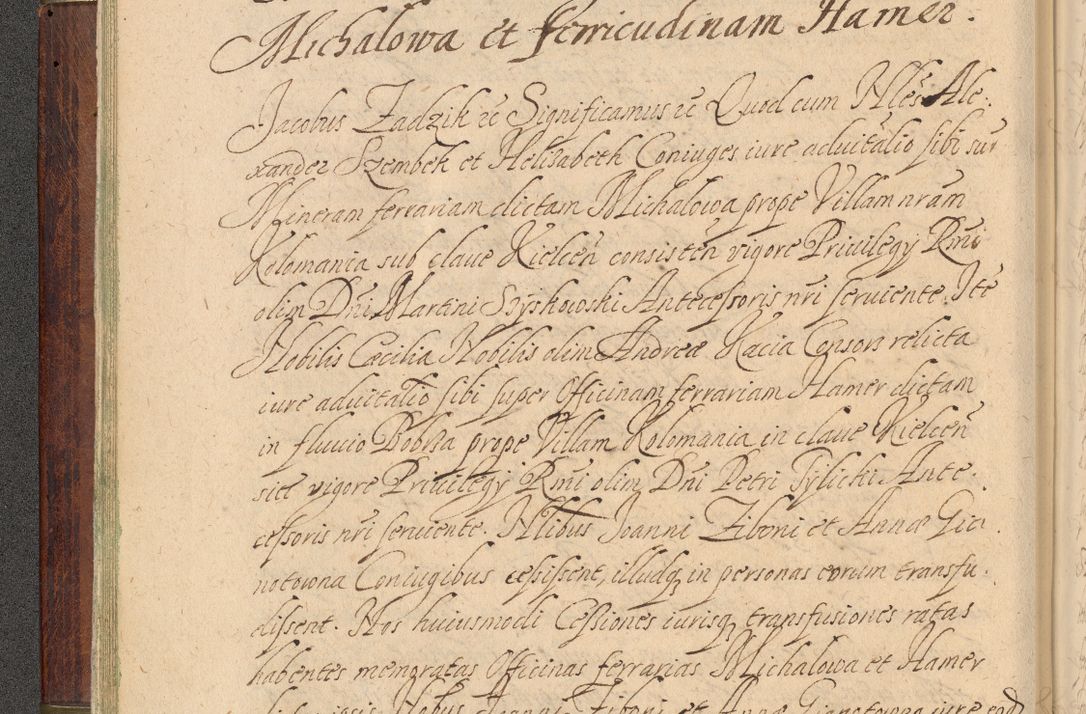 Michalowa et ferricudinam Hamer.
Jacobus Zadzik etc Significamus etc Quod cum Nbles Ale-
xander Szembek et Helisabeth Coniuges iure aduitalio sibi sur
Mineram ferrariam dictam Michalowa prope Villam nram
Kolomania sub claue Kielcen consisten vigore Priuilegy Rmi
olim Dni Martini Szyskowski Antecessoris nri seruiente. Ite
Nobilis Cæcilia Nobilis olim Andreæ Kacia Consors relicta
iure aduitalio sibi super Officinam ferrariam Hamer dictam
in fluuio Bobrza prope Villam Kolomania in claue Kielcen
sitt vigore Priuilegy Rmi olim Dni Petri Tylicki Ante-
cessoris nri seruiente. Nlibus Joanni Ziboni et Annæ Gia
notowna Coniugibus cessissent, illudq in personas eorum transfu-
dissent. Nos huiusmodi Cessiones iurisq transfusiones ratas
habentes memoratas Officinas ferrarias Michalowa et Hamer
Ziboni et Annæ Gianotowna iure eod